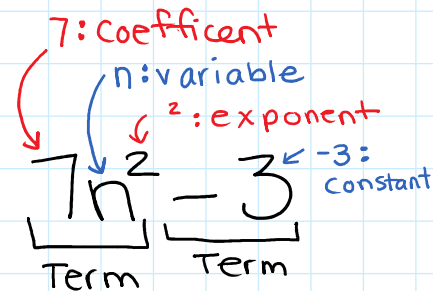 7:coefficent
n:variable
²:exponent
7n²-3
-3:
constant
Term
Term